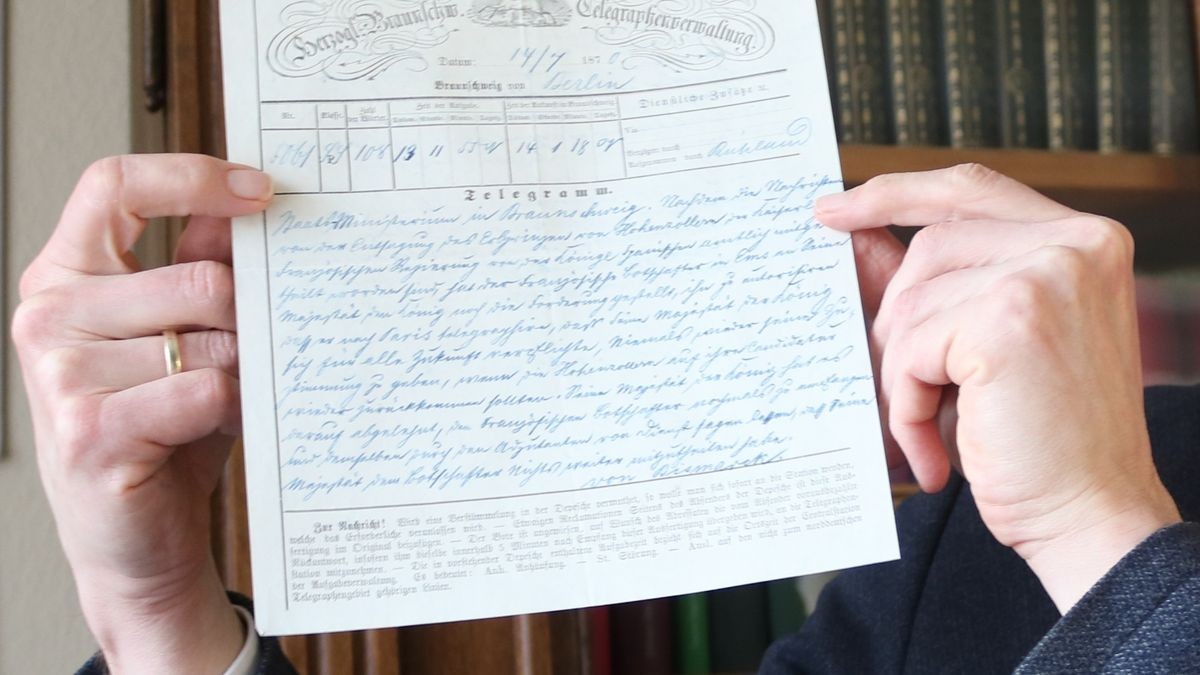 Herzogl. Braunschw. Telegraphenverwaltung.
Datum: 14/7 1870
Braunschweig von Berlin
Nr. Klasse. Zahl der Wörter. Zeit der Aufgabe. Zeit der Ankunft in Braunschweig. Dienstliche Zusätze
Datum. Stunde. Minute. Datum. Stunde. Minute.
Via
108 13 11 14 1 18
Aufgenommen durch Rühland
Telegramm.
Staats-Ministerium in Braunschweig. Nachdem die Nachrichten
von der Entsagung des Erbprinzen von Hohenzollern der Kaiserl.
Französischen Regierung von der Königl. Spanischen amtlich mitge-
theilt worden sind, hat der Französische Botschafter in Ems an Seine
Majestät den König noch die Forderung gestellt, ihn zu autorisiren
daß er nach Paris telegraphire, daß Seine Majestät der König
sich für alle Zukunft verpflichte, Niemals wieder seine Zu-
stimmung zu geben, wenn die Hohenzollern auf ihre Candidatur
wieder zurückkommen sollten. Seine Majestät der König hat es
darauf abgelehnt, den Französischen Botschafter nochmals zu empfangen
und demselben durch den Adjutanten vom Dienst sagen lassen, daß Seine
Majestät dem Botschafter Nichts weiter mitzutheilen habe.
von Bismarck
Zur Nachricht! Wird eine Verstümmelung in der Depesche vermuthet, so wolle man sich sofort an die Station wenden,
welche das Erforderliche veranlassen wird. — Etwaigen Reclamationen Seitens des Absenders der Depesche ist diese Aus-
fertigung im Original beizufügen. — Der Bote ist angewiesen, auf Wunsch des Adressaten die vom Absender vorausbezahlte
Rückantwort, insofern ihm dieselbe innerhalb 5 Minuten nach Empfang dieser Ausfertigung übergeben wird, an die Telegraphen-
Station mitzunehmen. — Die in vorstehender Depesche enthaltene Aufgabezeit bezieht sich auf die Ortszeit der Centralstation
der Aufgabeverwaltung. Es bedeutet: Anh. Anhäufung. — St. Störung. — Ausl. auf den nicht zum norddeutschen
Telegraphengebiet gehörigen Linien.